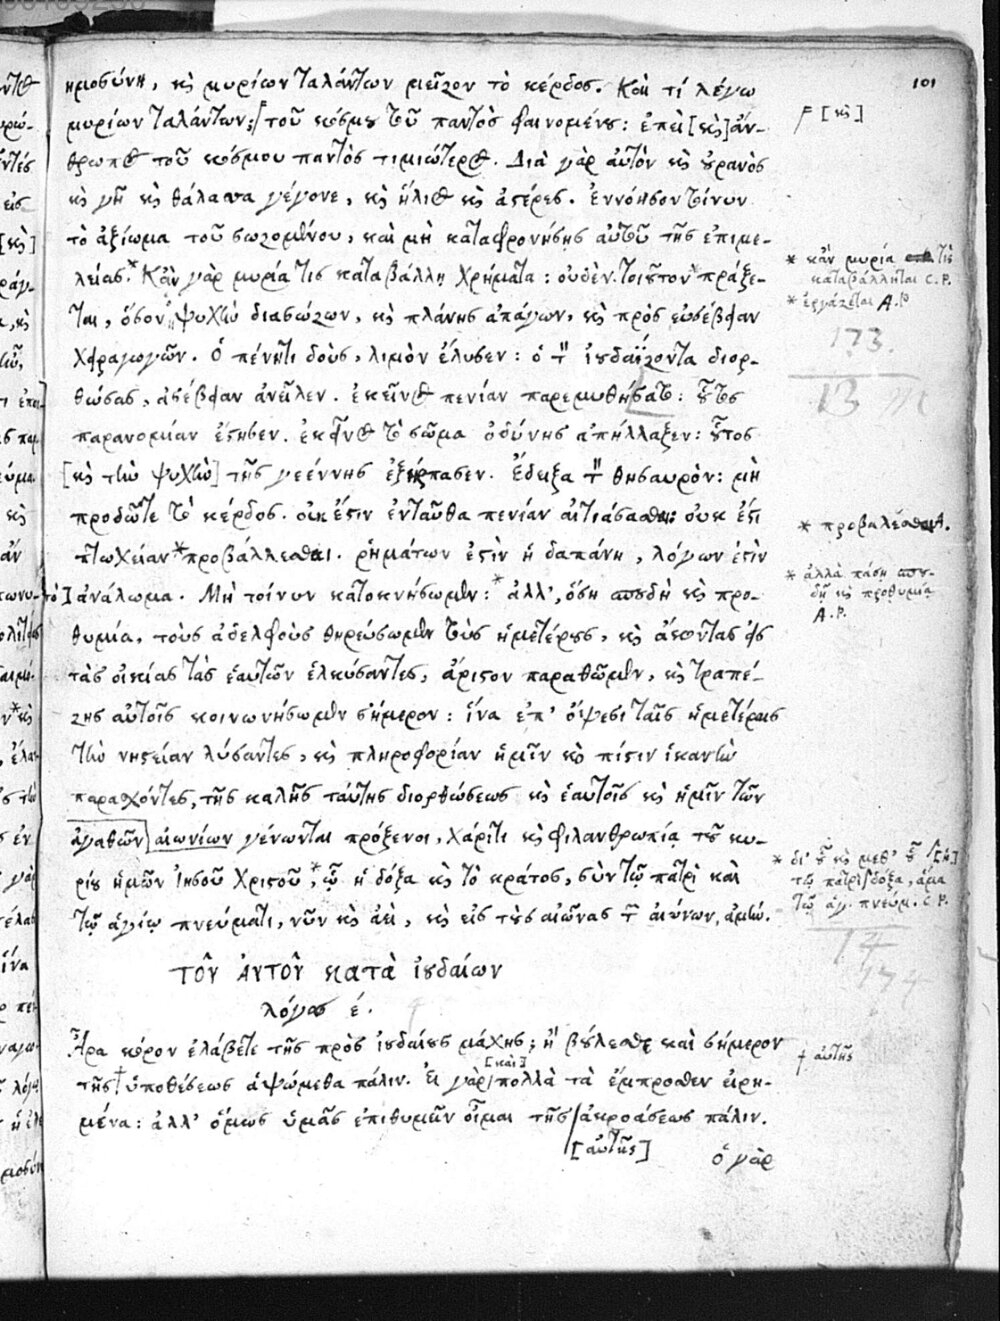 101
ημοσύνη, κ̀ς μυρίων ταλάντων μεῖζον τὸ κέρδος. Καὶ τί λέγω
μυρίων ταλάντων; τοῦ κόσμου τοῦ παντὸς φαινομένου: ἐπεὶ [κ̀ς] ἄν-
θρωπος τοῦ κόσμου παντὸς τιμιώτερος. Διὰ γὰρ αὐτὸν κ̀ς οὐρανὸς
κ̀ς γῆ κ̀ς θάλασσα γέγονε, κ̀ς ἥλιος κ̀ς ἀστέρες. Ἐννόησον τοίνυν
τὸ ἀξίωμα τοῦ σωζομένου, καὶ μὴ καταφρονήσῃς αὐτοῦ τῆς ἐπιμε-
λείας* Κἂν γὰρ μυρία τις καταβάλλῃ χρήματα: οὐδὲν τοιοῦτον* πράξε-
ται, ὅσον ὁ ψυχὴν διασώζων, κ̀ς πλάνης ἀπάγων, κ̀ς πρὸς εὐσέβειαν
χειραγωγῶν. Ὁ πένητι δοὺς, λιμὸν ἔλυσεν: ὁ τὸν ἰουδαΐζοντα διορ-
θώσας, ἀσέβειαν ἀνεῖλεν. ἐκεῖνος πενίαν παρεμυθήσατο: οὗτος
παρανομίαν ἔστησεν. ἐκεῖνος τὸ σῶμα ὀδύνης ἀπήλλαξεν: οὗτος
[κ̀ς τὴν ψυχὴν] τῆς γεέννης ἐξήρπασεν. Ἔδειξα τὸν θησαυρὸν: μὴ
προδῶτε τὸ κέρδος. οὐκ ἔστιν ἐνταῦθα πενίαν αἰτιάσασθαι: οὐκ ἔστι
πτωχείαν* προβάλλεσθαι. ῥημάτων ἐστὶν ἡ δαπάνη, λόγων ἐστὶν
τὸ] ἀνάλωμα. Μὴ τοίνυν κατοκνήσωμεν:* ἀλλ', ὅση σπουδὴ κ̀ς προ-
θυμία, τοὺς ἀδελφοὺς θηρεύσωμεν τοὺς ἡμετέρους, κ̀ς ἄκοντας εἰς
τὰς οἰκίας τὰς ἑαυτῶν ἑλκύσαντες, ἄριστον παραθῶμεν, κ̀ς τραπέ-
ζης αὐτοῖς κοινωνήσωμεν σήμερον: ἵνα ἐπ' ὄψεσι ταῖς ἡμετέραις
τὴν νηστείαν λύσαντες, κ̀ς πληροφορίαν ἡμῖν κ̀ς πίστιν ἱκανὴν
παρασχόντες, τῆς καλῆς ταύτης διορθώσεως κ̀ς ἑαυτοῖς κ̀ς ἡμῖν τῶν
ἀγαθῶν αἰωνίων γένωνται πρόξενοι, χάριτι κ̀ς φιλανθρωπίᾳ τοῦ κυ-
ρίου ἡμῶν Ἰησοῦ Χριστοῦ,* ᾧ ἡ δόξα κ̀ς τὸ κράτος, σὺν τῷ πατρὶ καὶ
τῷ ἁγίῳ πνεύματι, νῦν κ̀ς ἀεὶ, κ̀ς εἰς τοὺς αἰῶνας τῶν αἰώνων, ἀμήν.
ΤΟΥ ΑΥΤΟΥ κατὰ ἰουδαίων
λόγος έ.
Ἆρα κόρον ἐλάβετε τῆς πρὸς ἰουδαίους μάχης; ἢ βούλεσθε καὶ σήμερον
τῆς † ὑποθέσεως ἁψώμεθα πάλιν. Εἰ γὰρ [καὶ] πολλὰ τὰ ἔμπροσθεν εἰρη-
μένα: ἀλλ' ὅμως ὑμᾶς ἐπιθυμεῖν οἶμαι τῆς ἀκροάσεως πάλιν.
[αὐτῆς] ὁ γὰρ
[κ̀ς]
* κἂν μυρία τὶς
καταβάλληται C.P.
* ἐργάζεται A.P
173.
13
* προβαλέσθαι A.
* ἀλλὰ πάσῃ σπου-
δῇ κ̀ς προθυμίᾳ
A.P.
* δι' οὗ κ̀ς μεθ' οὗ [ἡ]
τῷ πατρὶ δόξα, ἅμα
τῷ ἁγ. πνεύμ. C P.
14
174
† αὐτῆς